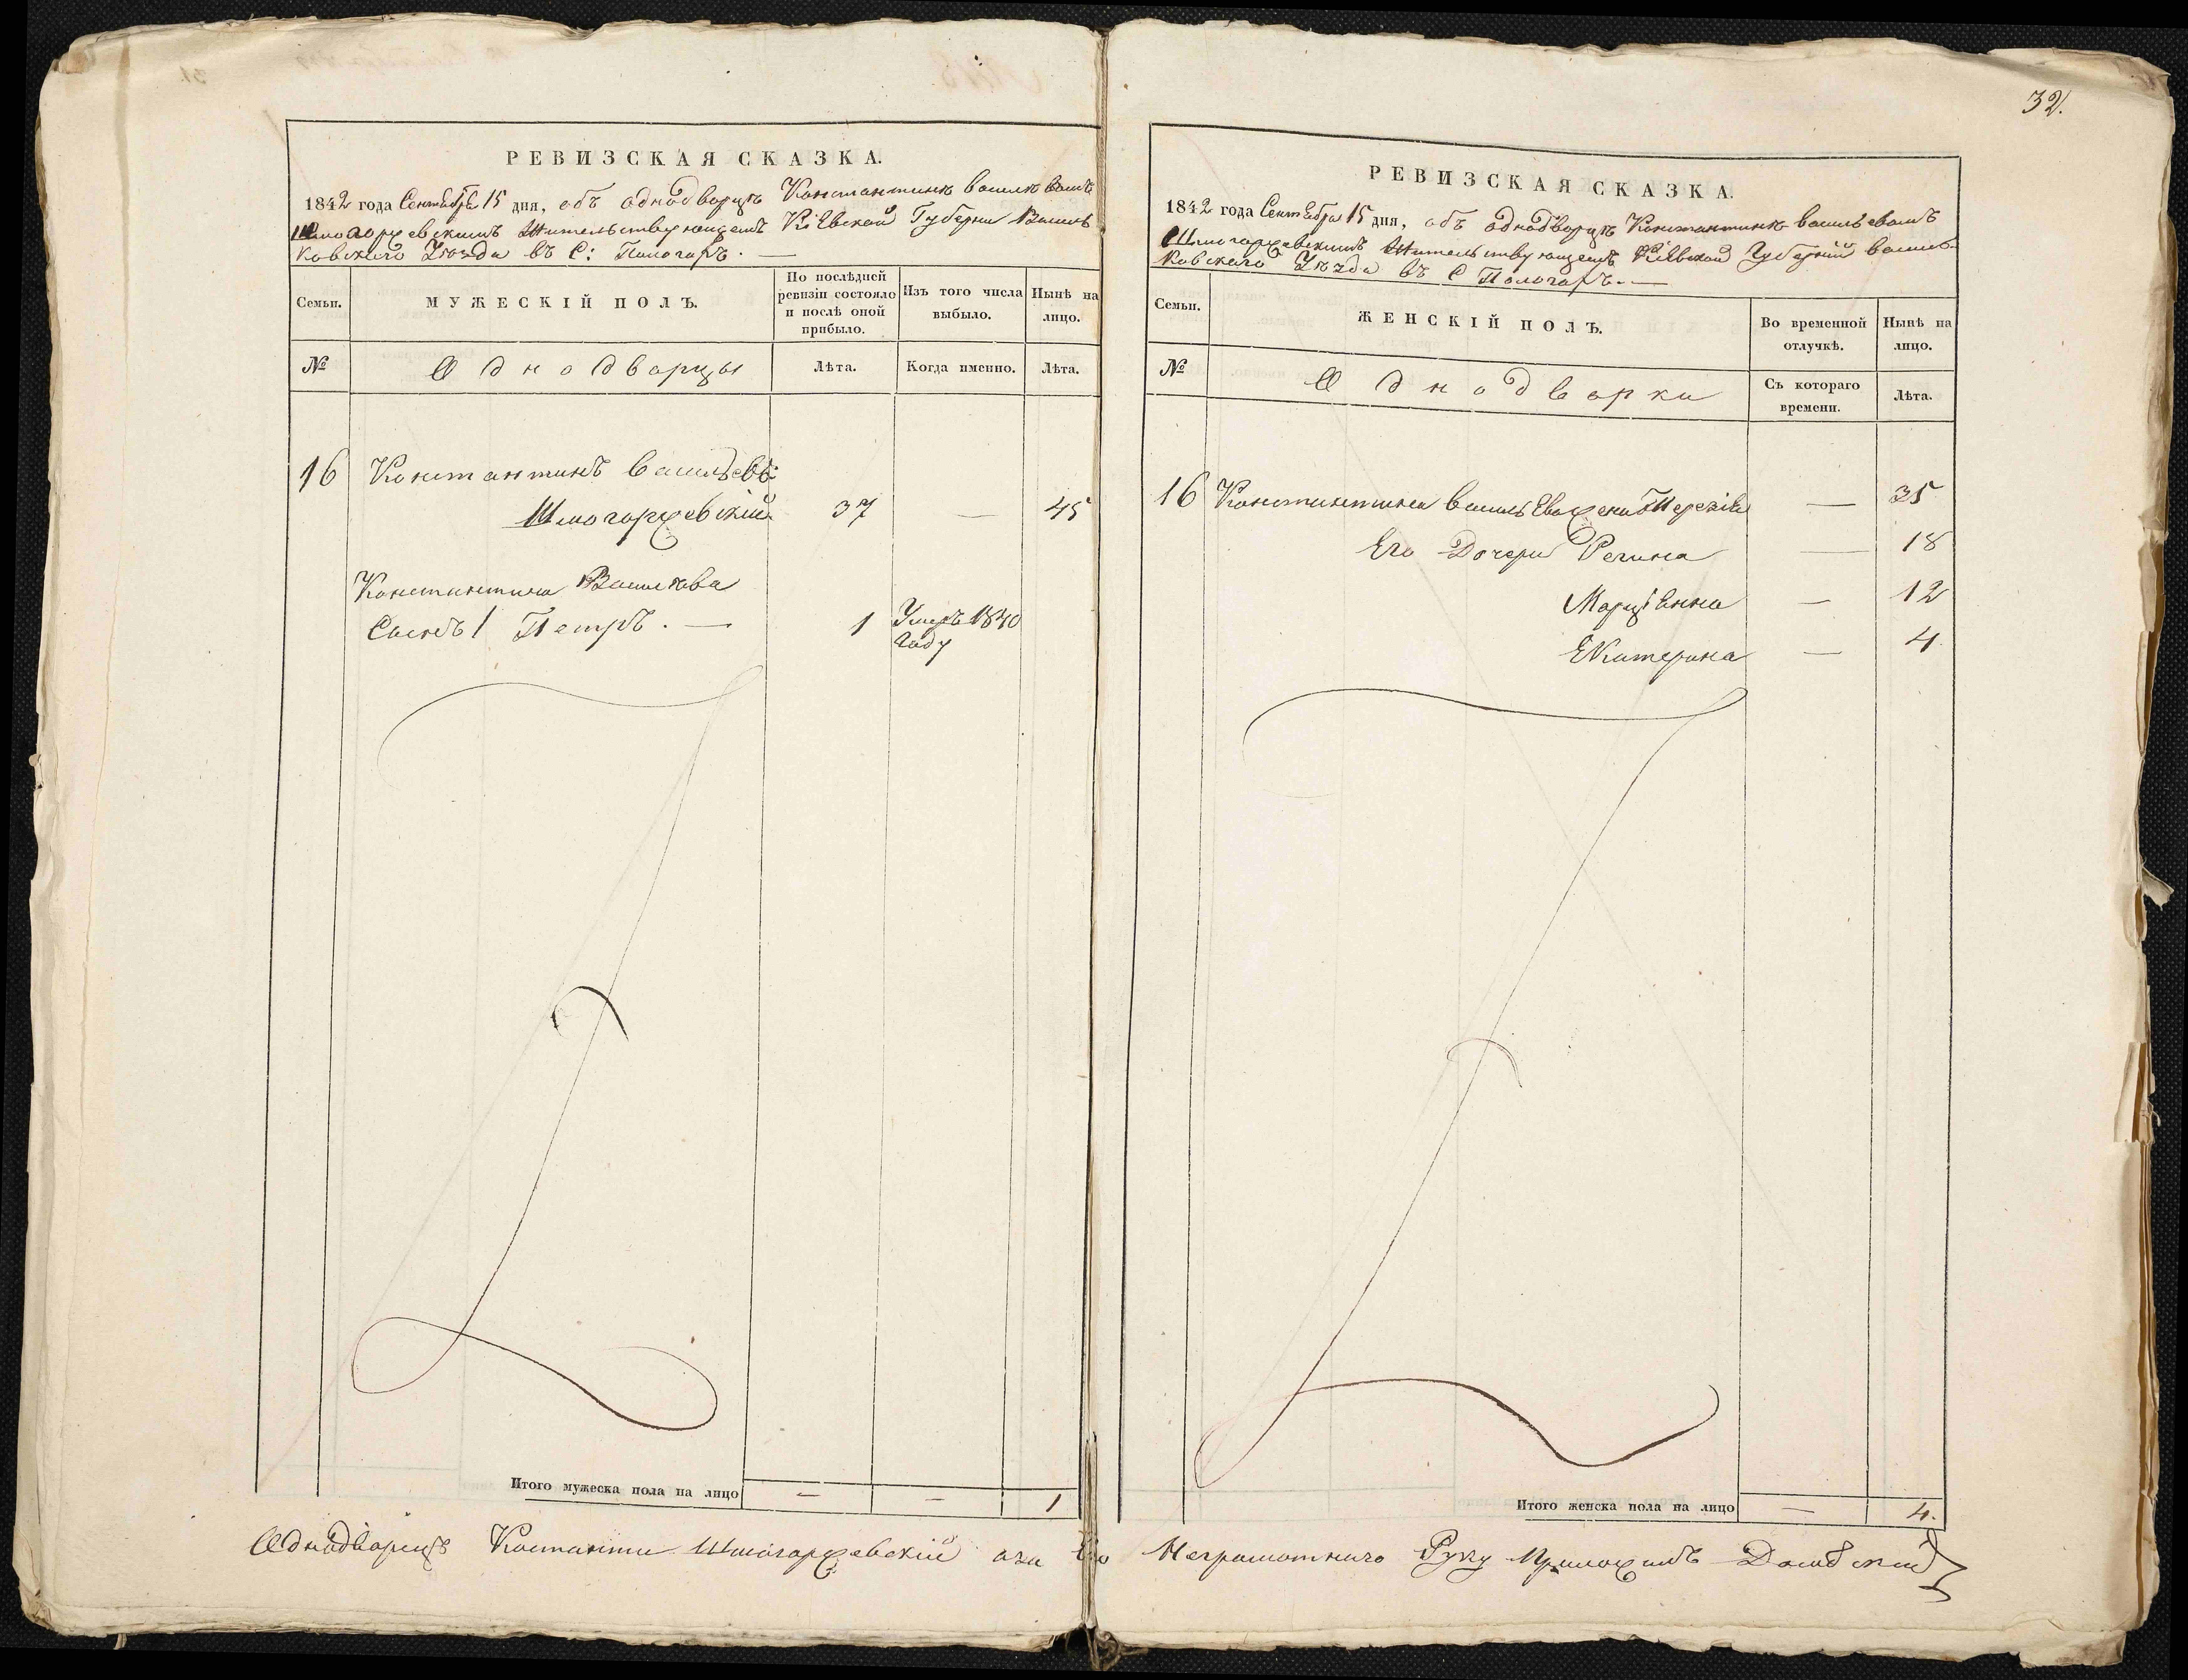 32.
РЕВИЗСКАЯ СКАЗКА.
1842 года Сентября 15 дня, объ однодворцѣ Константинѣ Васильевѣ
Шмогоржевскимъ Жительствующемъ Кіевской Губерни Василь
ковскаго Уѣзда въ С:
Семьи.
МУЖЕСКІЙ ПОЛЪ.
По послѣдней ревизіи состояло и послѣ оной прибыло.
Изъ того числа выбыло.
Нынѣ на лицо.
№
Однодворцы
Лѣта.
Когда именно.
Лѣта.
16 Константинъ Васильевъ
Шмогоржевскій 37 — 45
Константина Василева
Сынъ 1 Петръ. — 1 Умеръ 1840
году
Итого мужеска пола на лицо — — 1
РЕВИЗСКАЯ СКАЗКА.
1842 года Сентября 15 дня, объ однодворцѣ Константинѣ Васильевомъ
Шмогоржевскимъ Жительствующемъ Кіевской Губерній Василь
ковскаго Уѣзда въ С
Семьи.
ЖЕНСКІЙ ПОЛЪ.
Во временной отлучкѣ.
Нынѣ на лицо.
№
Однодворки
Съ котораго времени.
Лѣта.
16 Константина Василь Ева жена — 35
Его Дочери Регина — 18
Марціанна — 12
Екатерина — 4
Итого женска пола на лицо — 4.
Однодворецъ Костанти Шмогоржевскій Его Неграмотнаго Руку Приложилъ